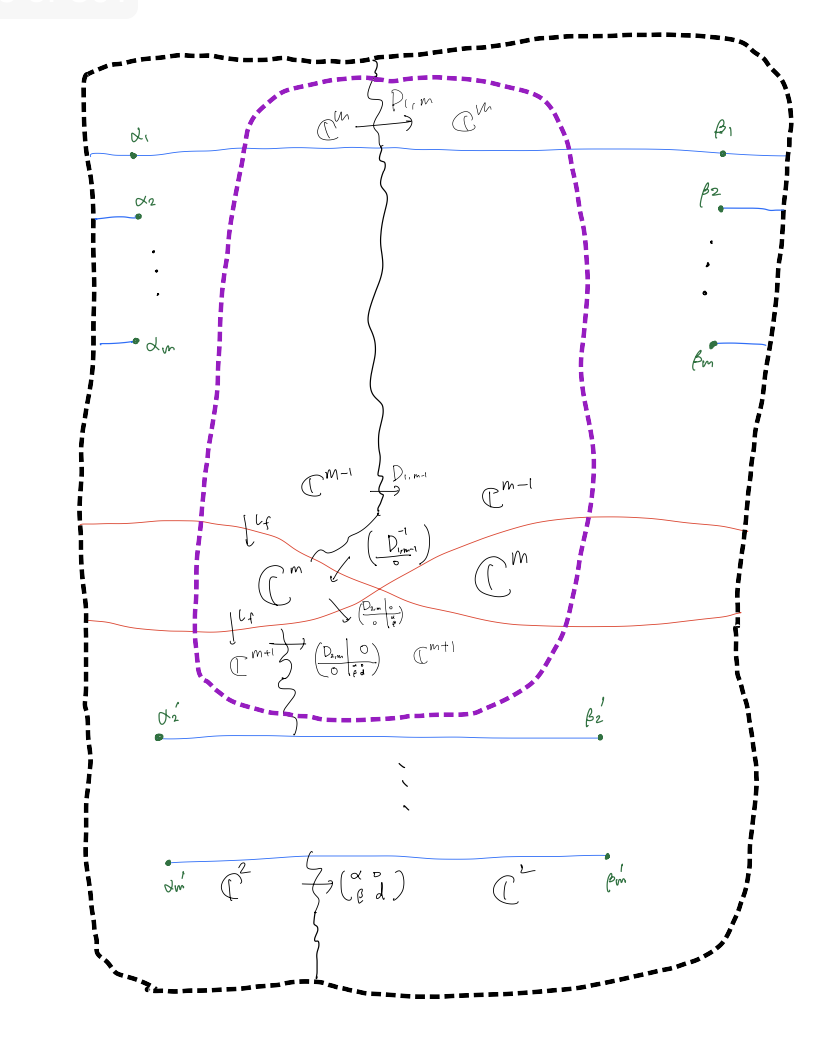 ℂᵐ D₁,ₘ ℂᵐ
α₁ β₁
α₂ β₂
αₘ βₘ
ℂᵐ⁻¹ D₁,ₘ₋₁ ℂᵐ⁻¹
ι_f (D⁻¹₁,ₘ₋₁ / 0)
ℂᵐ ℂᵐ
ι_f (D₂,ₘ | 0 / 0 |
ℂᵐ⁺¹ (D₂,ₘ | 0 / 0 | α 0 β d) ℂᵐ⁺¹
α₂′ β₂′
αₘ′ ℂ² (α 0 β d) ℂ² βₘ′